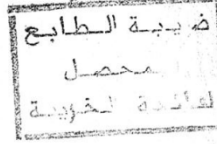 ضريبة الطابع
محصل
لفائدة الخزينة